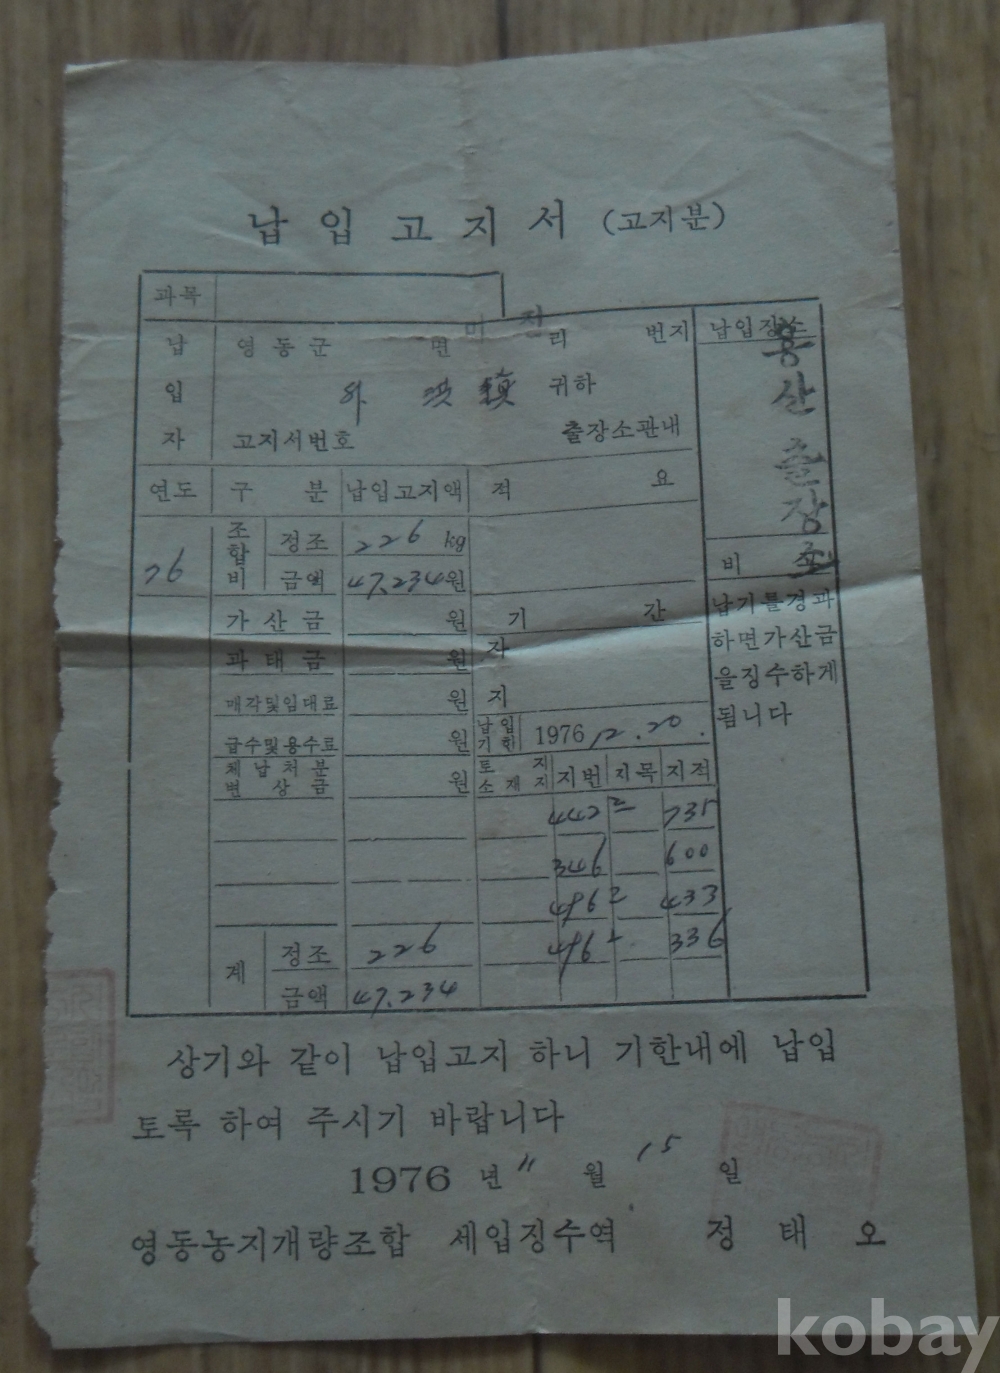 납입고지서 (고지분)
과목
납입자
영동군 면 미전리 번지
외 洪鎭 귀하
고지서번호 출장소관내
납입장소
용산출장소
연도 구분 납입고지액 적요
76 조합비 정조 226 kg
금액 47,234원
비고
납기를경과
하면가산금
을징수하게
됩니다
가산금 원 기간
과태금 원 자
매각및임대료 원 지
급수및용수료 원 납입기한 1976 12. 20.
체납처분변상금 원 토지소재지 지번 지목 지적
442 2 735
346 600
496 2 433
496 336
계 정조 226
금액 47,234
상기와 같이 납입고지 하니 기한내에 납입
토록 하여 주시기 바랍니다
1976 년 11 월 15 일
영동농지개량조합 세입징수역 정태오
kobay